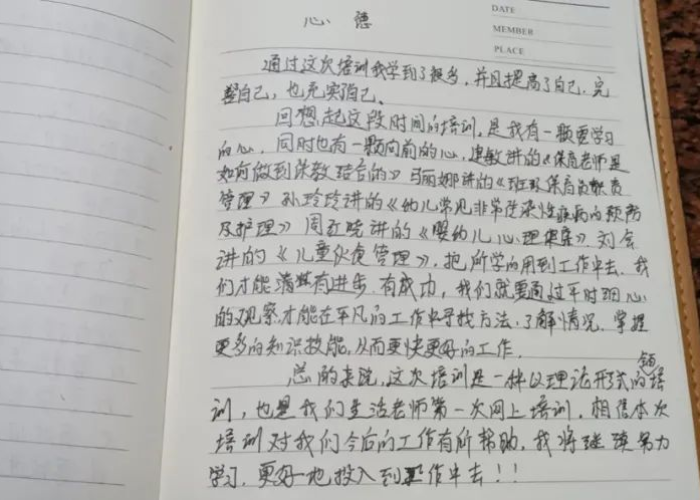 心 德
DATE
MEMBER
PLACE
通过这次培训我学到了很多，并且提高了自己，完
塑自己，也充实自己。
回想起这段时间的培训，是我有一颗要学习
的心，同时也有一颗向前的心，建敏讲的《保育老师是
如何做到保教结合的》马丽娜讲的《班级保育员教员
管理》孙玲玲讲的《幼儿常见非常传染性疾病的预防
及护理》周红晓讲的《婴幼儿心理》刘会
讲的《儿童伙食管理》，把所学的用到工作中去，我
们才能有进步，有成功，我们就要通过平时细心
的观察才能在平凡的工作中寻找方法，了解情况，掌握
更多的知识技能，从而更快更好的工作。
总的来说，这次培训是一种以理论形式的培
训，也是我们生活老师第一次网上培训，相信本次
培训对我们今后的工作有所帮助，我将继续努力
学习，更好地投入到工作中去！！